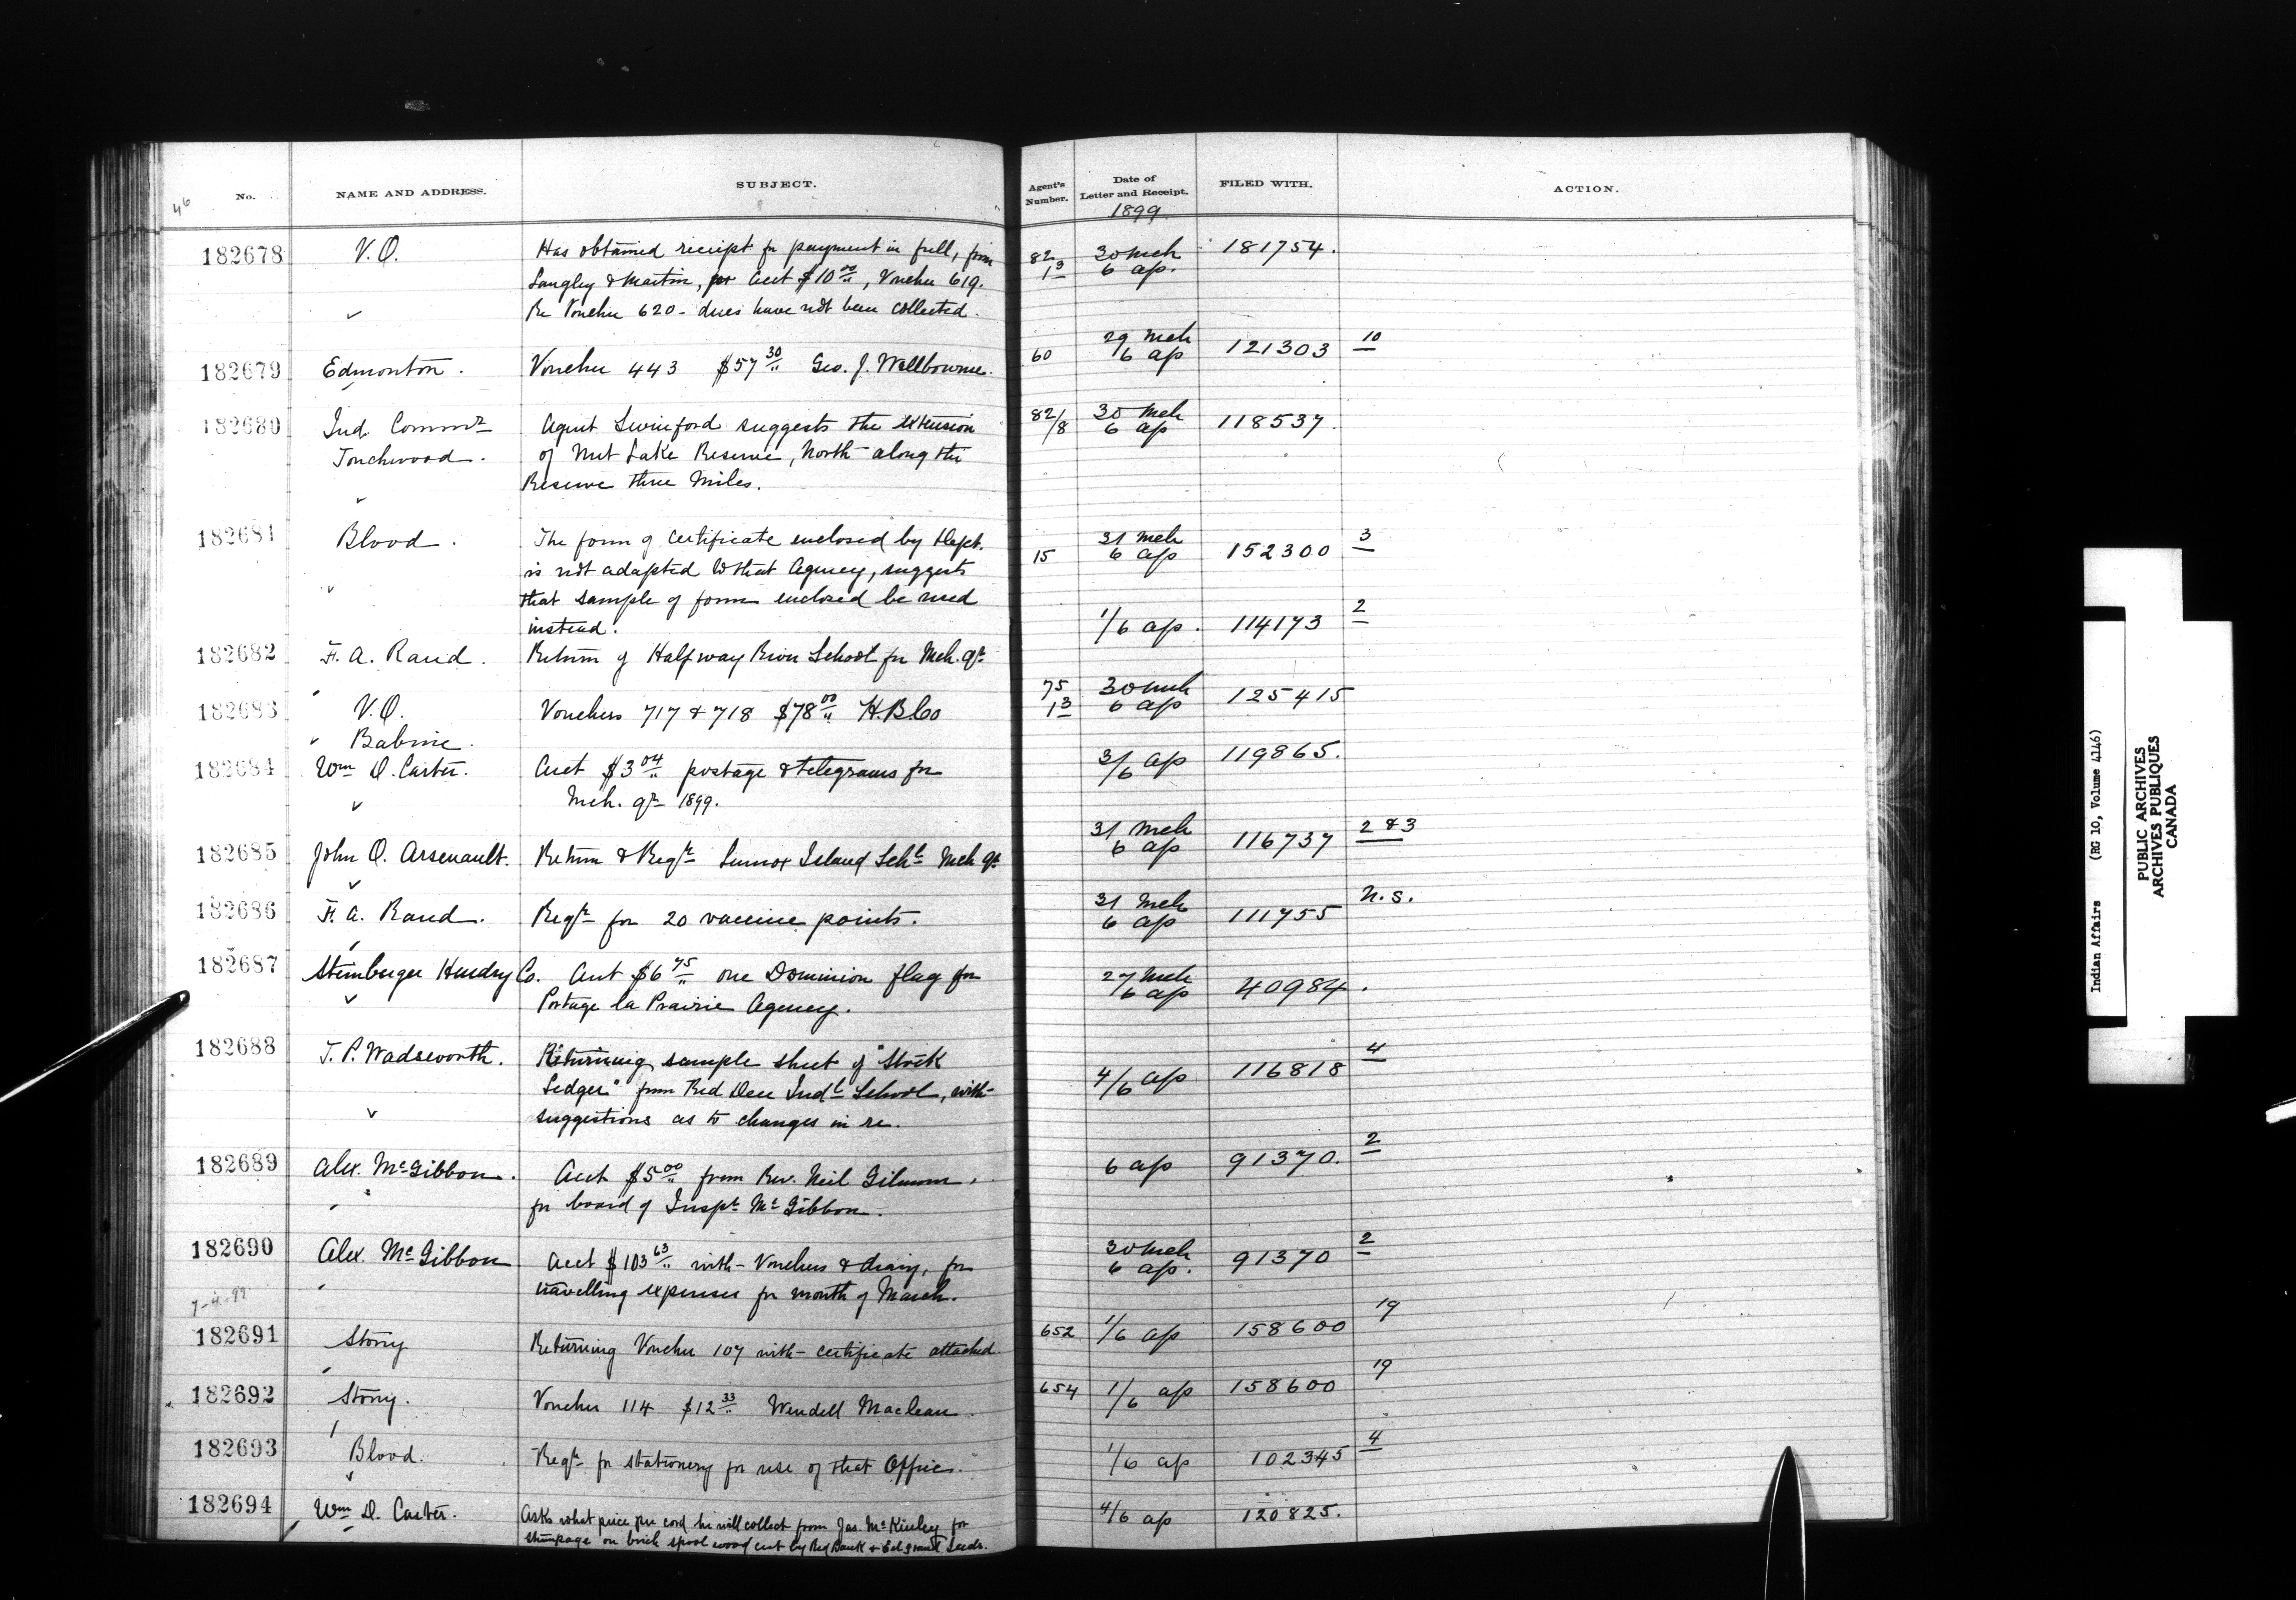 46
No. NAME AND ADDRESS. SUBJECT. Agent's Number. Date of Letter and Receipt. FILED WITH. ACTION.
1899
182678 V.O. Has obtained receipt for payment in full, from 82/13 30 Mch 6 ap. 181754.
Langley & Martin, for Acct $10.00, Voucher 619.
Re Voucher 620 - dues have not been collected.
182679 Edmonton. Voucher 443 $57.30 Geo. J. Wellbourne. 60 29 Mch 6 ap 121303 10
182680 Ind. Commr Agent Swinford suggests the extension 82/8 30 Mch 6 ap 118537.
Touchwood. of Nut Lake Reserve, North along the
Reserve three miles.
182681 Blood. The form of certificate enclosed by Dept. 15 31 Mch 6 ap 152300 3
is not adapted to that Agency, suggests
that sample of form enclosed be used
instead.
182682 F. A. Rand. Return of Halfway River School for Mch. qr 1/6 ap. 114173 2
182683 V.O. Vouchers 717 & 718 $78.00 H.B.Co 75/13 30 Mch 6 ap 125415
Babine.
182684 Wm D. Carter. Acct $3.04 postage & telegrams for 3/6 ap 119865.
Mch. qr 1899.
182685 John O. Arsenault. Return & Reqn Lennox Island Schl Mch qr 31 Mch 6 ap 116737 2 & 3
182686 F. A. Rand. Reqn for 20 vaccine points. 31 Mch 6 ap 111755 N.S.
182687 Steinberger Hendry Co. Acct $6.75 one Dominion flag for 27 Mch 6 ap 40984.
Portage la Prairie Agency.
182688 T. P. Wadsworth. Returning sample sheet of "Stock 4/6 ap 116818 4
Ledger" from Red Deer Indl School, with
suggestions as to changes in re.
182689 Alex. McGibbon. Acct $5.00 from Rev. Neil Gilmour, 6 ap 91370. 2
for board of Inspr McGibbon.
182690 Alex. McGibbon Acct $103.63 with Vouchers & diary, for 30 Mch 6 ap. 91370 2
travelling expenses for month of March.
7-4-99
182691 Stony Returning Voucher 107 with certificate attached. 652 1/6 ap 158600 19
182692 Stony. Voucher 114 $12.33 Wendell Maclean. 654 1/6 ap 158600 19
182693 Blood. Reqn for stationery for use of that Office. 1/6 ap 102345 4
182694 Wm D. Carter. Asks what price per cord he will collect from Jas. McKinley for 4/6 ap 120825.
stumpage on birch spool wood cut by Red Bank & Eel Ground Inds.
Indian Affairs (RG 10, Volume 4146)
PUBLIC ARCHIVES
ARCHIVES PUBLIQUES
CANADA